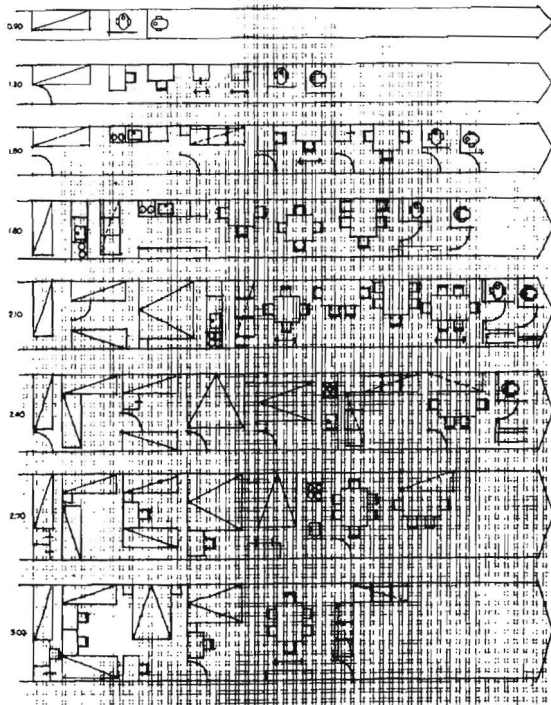 0.90
1.20
1.50
1.80
2.10
2.40
2.70
3.00